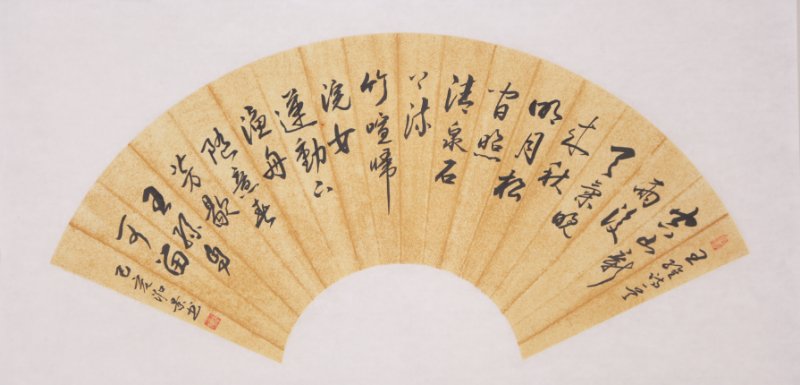 王維詩
空山新
雨後
天氣晚
来秋
明月松
間照
清泉石
上流
竹喧歸
浣女
蓮動下
漁舟
随意春
芳歇
王孫自
可留
己亥
書